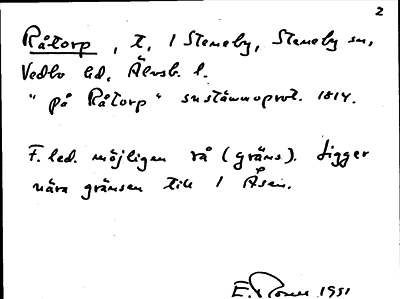 2
Råtorp, t, 1 Steneby, Steneby sn,
Vedbo hd, Älvsb. l.
"på Råtorp" snstämmoprot. 1814.
F. led. möjligen rå (gräns). Ligger
nära gränsen till 1 Åsen.
E. 1951